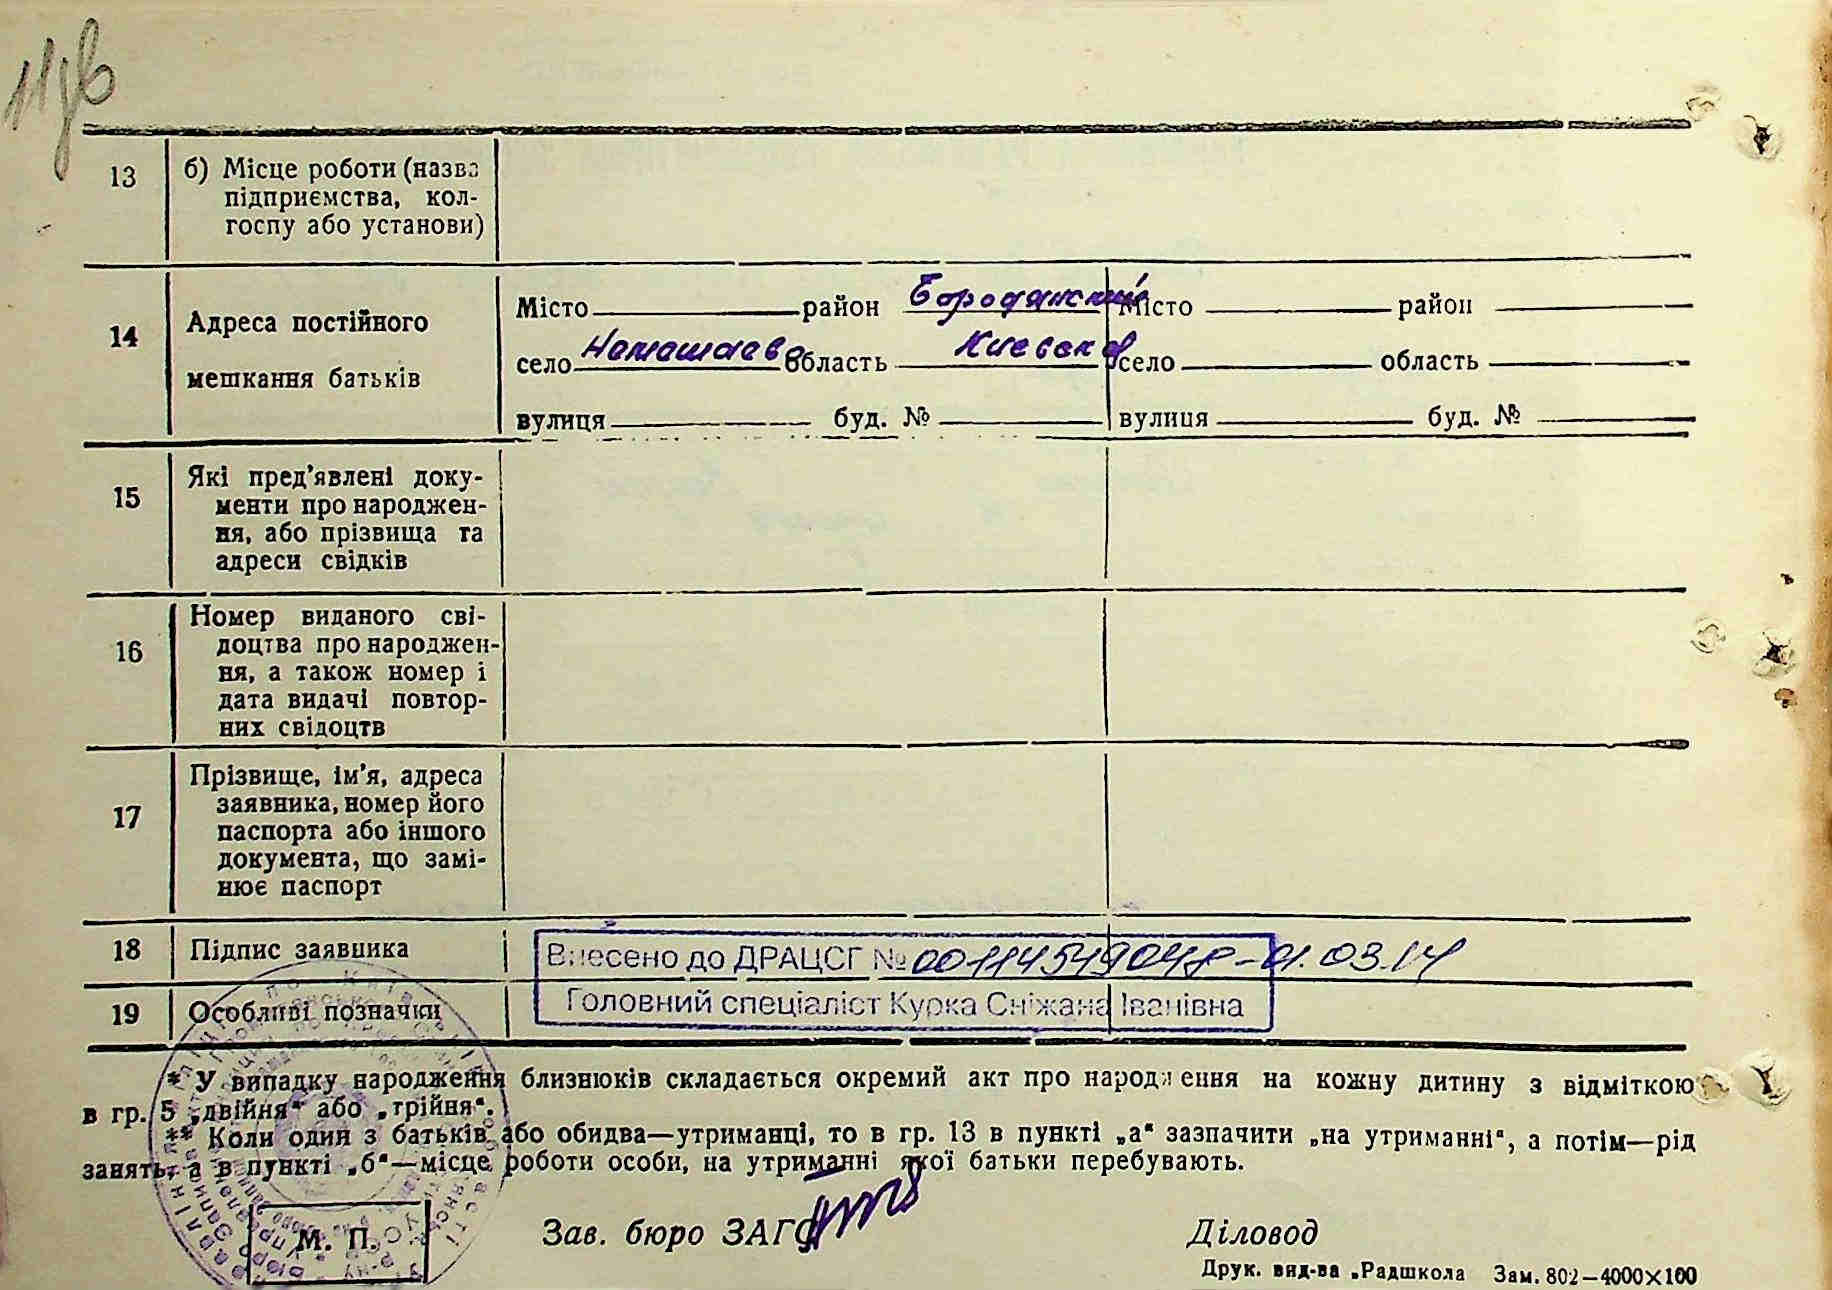 13 б) Місце роботи (назва
підприємства, кол-
госпу або установи)
14 Адреса постійного
мешкання батьків
Місто район Бородянский Місто район
село Немешаево область Киевск село область
вулиця буд. № вулиця буд. №
15 Які пред'явлені доку-
менти про народжен-
ня, або прізвища та
адреси свідків
16 Номер виданого сві-
доцтва про народжен-
ня, а також номер і
дата видачі повтор-
них свідоцтв
17 Прізвище, ім'я, адреса
заявника, номер його
паспорта або іншого
документа, що замі-
нює паспорт
18 Підпис заявника
Внесено до ДРАЦСГ № 01.03.14
19 Особливі позначки
Головний спеціаліст Курка Сніжана Іванівна
* У випадку народження близнюків складається окремий акт про народження на кожну дитину з відміткою
в гр. 5 „двійня“ або „трійня“.
** Коли один з батьків або обидва—утриманці, то в гр. 13 в пункті „а“ зазпачити „на утриманні“, а потім—рід
занять, а в пункті „б“—місце роботи особи, на утриманні якої батьки перебувають.
М. П.
Зав. бюро ЗАГС
Діловод
Друк. вид-ва „Радшкола Зам. 802—4000×100